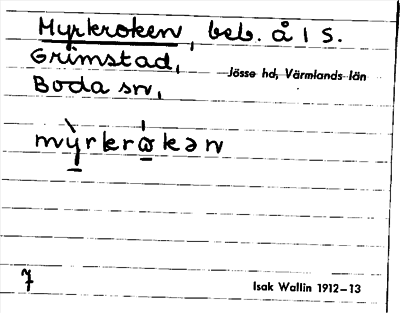 Myrkroken, beb. å 1 S.
Grimstad,
Jösse hd, Värmlands län
Boda sn,
mỳrkrɷ̀kən
7
Isak Wallin 1912–13